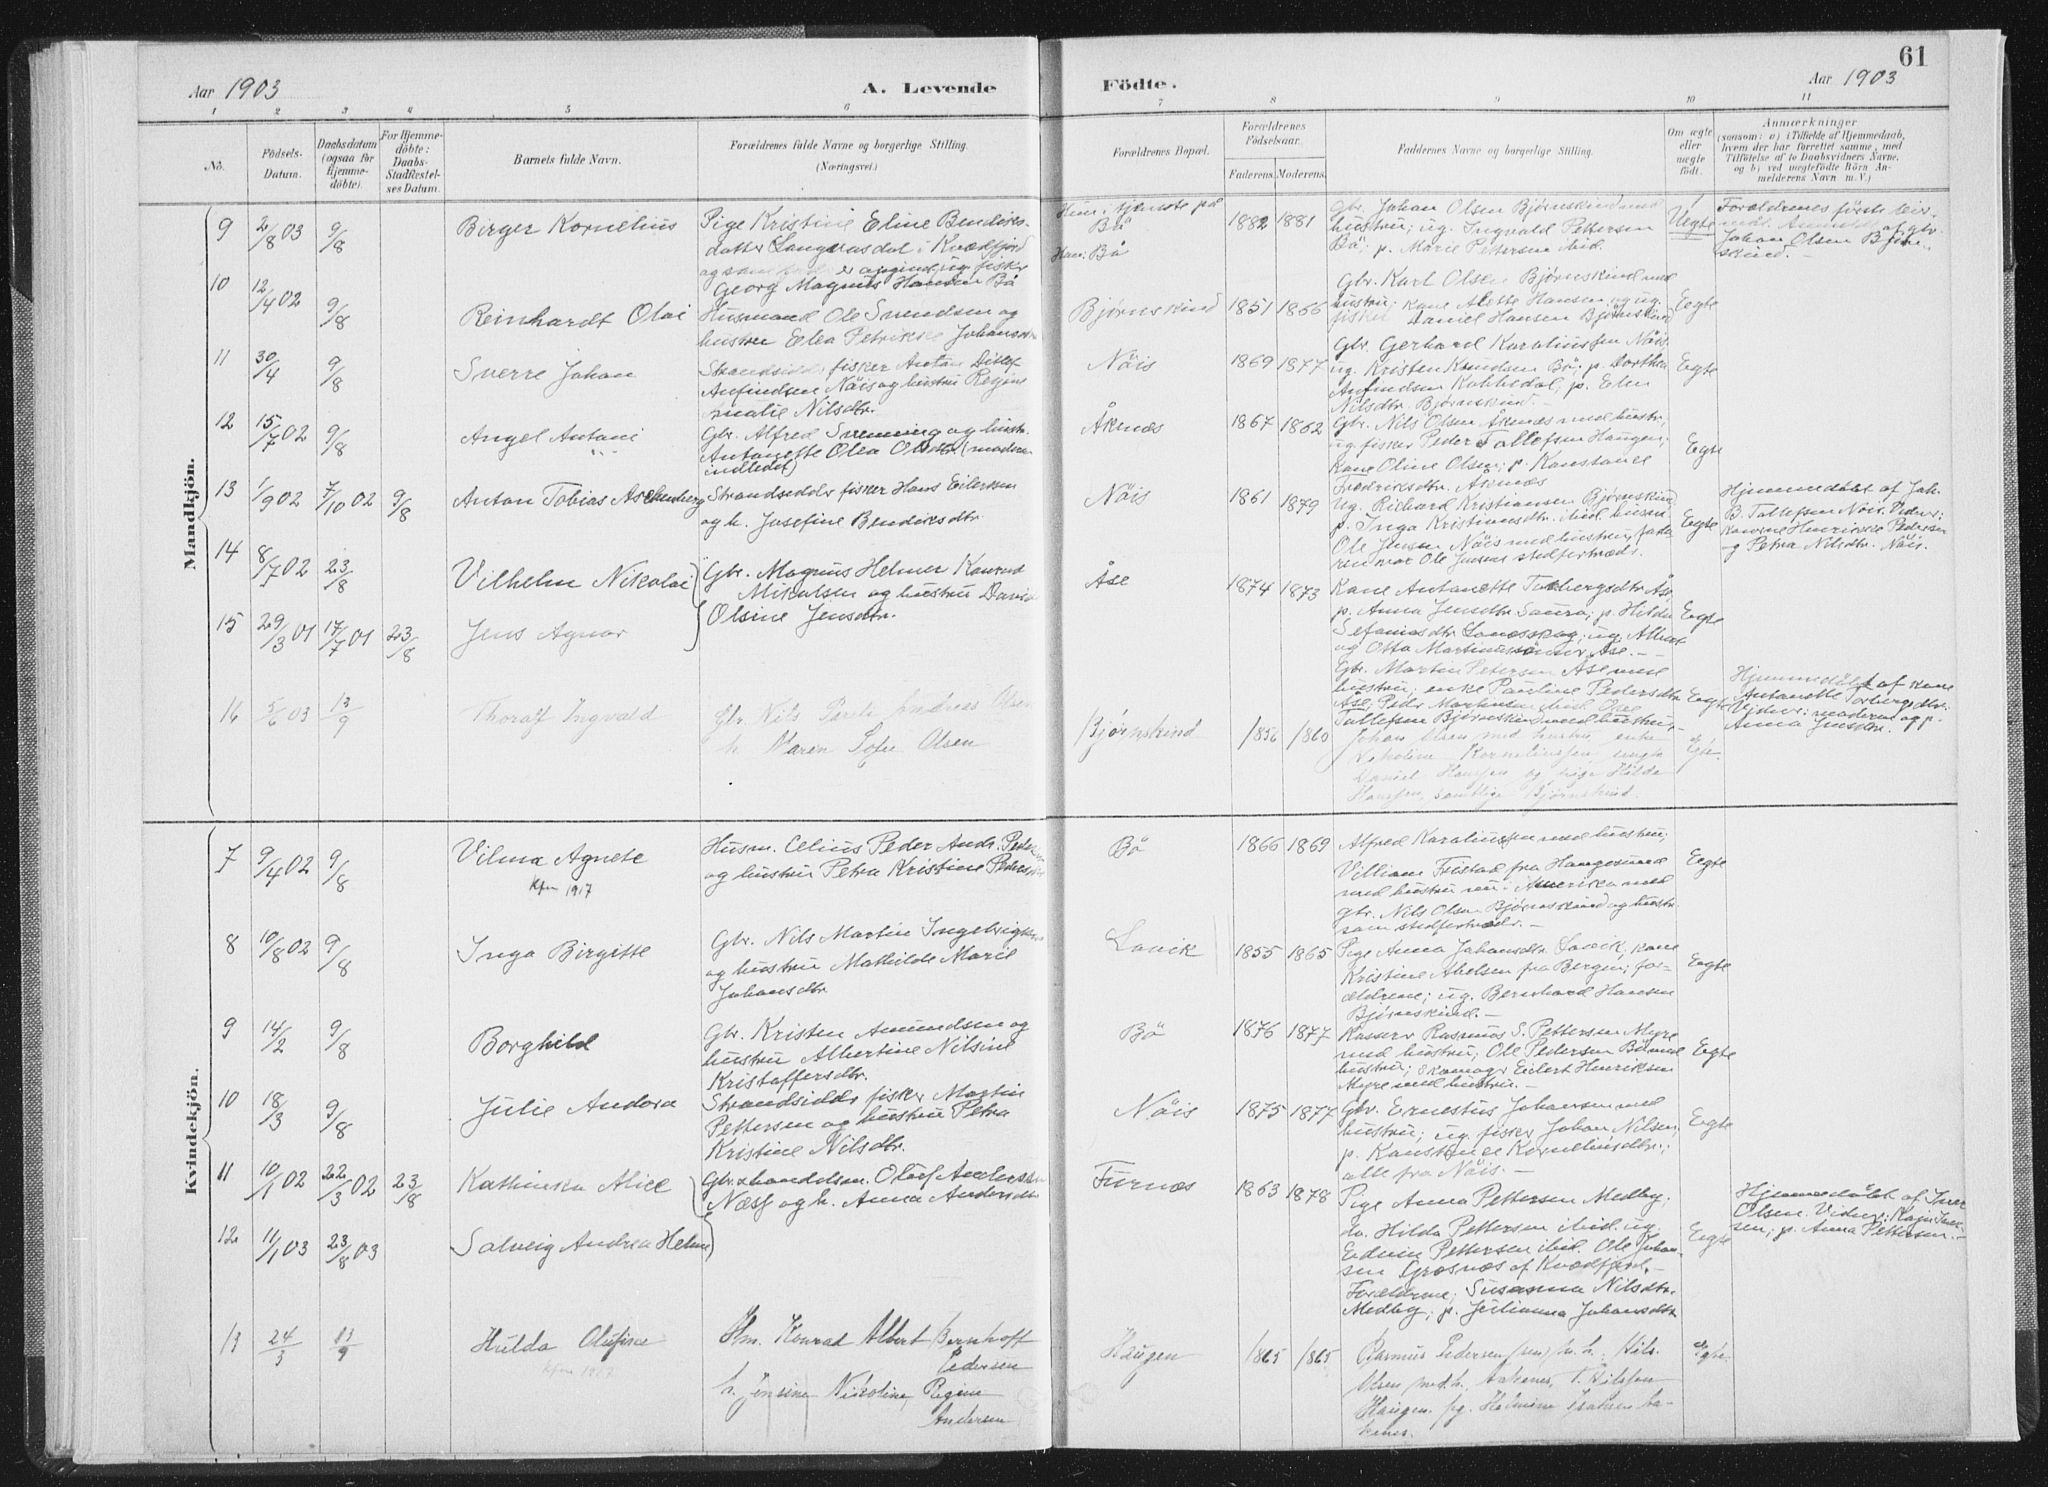 61
Aar 1903
A. Levende
Födte.
Aar 1903
1 2 3 4 5 6 7 8 9 10 11
No.
Födsels-
Datum.
Daabsdatum
(ogsaa for
Hjemme-
döbte).
For Hjemme-
döbte:
Daabs-
Stadfæstel-
ses Datum.
Barnets fulde Navn.
Forældrenes fulde Navne og borgerlige Stilling.
(Næringsvei.)
Forældrenes Bopæl.
Forældrenes
Födselsaar.
Faderens. Moderens.
Faddernes Navne og borgerlige Stilling.
Om ægte
eller
uægte
födt.
Anmærkninger
(saasom: a) i Tilfælde af Hjemmedaab,
hvem der har forrettet samme, med
Tilföielse af to Daabsvidners Navne,
og b) ved uægtefödte Börn An-
melderens Navn m. V.)
Mandkjön.
9 2/8 03 9/8 Birger Kornelius
Pige Kristine Eline Bendiks-
datter Langvasdal i Kvæfjord
Georg Magnus Hansen Bö
Bö
1882 1881
Gbr. Johan Olsen Bjørnskind med
hustru; ug. Ingvald Pettersen
Bö; p. Marie Petersen ibid.
Uegte
Forældrenes første
Johan Olsen Bjørn-
skind.
10 12/4 02 9/8 Reinhardt Olai
Husmand Ole Svendsen og
hustru Elea Petrikke Johansdtr
Bjørnskind 1851 1866
Gbr. Karl Olsen Bjørnskind med
hustru; kone Alette Hansen og ug.
fisker Daniel Hansen Bjørnskind
Egte
11 30/4 9/8 Sverre Johan
Strandsidder fisker Anton Ditlef
Anfindsen Nöis og hustru Regine
Nilsdtr.
Nöis 1869 1877
Gbr. Gerhard Karoliussen Nöis.
ug. Kristen Knudsen Bö; p. Dorthea
Anfindsen Kobbedal; p. Elen
Nilsdtr. Bjørnskind.
Egte
12 15/7 02 9/8 Angel Antoni
Gbr. Alfred Svenning og hustr.
Antonette Olea Olsdtr.
indledet)
Åknæs 1867 1862
Gbr. Nils Olsen Åknæs med hustr;
ug fisker Peder Tollefsen Haugen;
Kone Oline Olsen; p. Konstanse
Fredriksdtr. Åknæs
Egte
13 1/9 02 7/10 02 9/8 Anton Tobias Aschenberg
Strandsidder fisker Hans Eilertsen
og h. Josefine Bendiksdtr.
Nöis 1861 1879
Ug. Richard Kristiansen Bjørnskind
p. Inga Kristiansdtr. ibid.
Ole Jensen Nöis med hustru;
ren var Ole Jensens stedfortræder.
Egte
Hjemmedöbt af Joh.
B. Tollefsen Nöis. Vidner:
konerne Henrikke Pedersen
og Petra Nilsdtr. Nöis.
14 8/7 02 23/8 Vilhelm Nikolai
Gbr. Magnus Helmer Konrad
Mikalsen og hustru
Olsine Jensdtr.
Åse 1874 1873
Kone Antonette Torbergsdtr. Åse
p. Anna Jensdtr. Saura; p. Hilda
Sefaniasdtr. Lanesskog; ug. Albert
og Otto Martinussønner Åse.
Egte
15 29/3 01 17/7 01 23/8 Jens Agnar
Gbr. Martin Petersen Åse med
hustru; enke Pauline Pedersdtr
Åse; Peder Martinsen ibid. Ole
Tollefsen Bjørnskind med hustru.
Egte
Hjemmedöbt af kone
Antonette Torbergsdtr.
Vidner: moderen og p.
Anna Jensdtr.
16 5/6 03 13/9 Thoralf Ingvald
Gbr. Nils Andreas Olsen
h. Maren Sofie Olsen
Bjørnskind 1856 1860
Johan Olsen med hustru, enke
Korneliussen, ungk.
Daniel Hanssen og pige Hilda
Hanssen, samtlige Bjørnskind.
Egte.
Kvindekjön.
7 9/4 02 9/8 Vilma Agnete
Kfm 1917
Husm. Celius Peder Andr.
og hustru Petra Kristine
Bö 1866 1869
Alfred Karoliussen med hustru;
Villiam Frøstad fra Haugesund
med hustru nu i Amerika med
gbr. Nils Olsen Bjørnskind og hustr.
som stedfortræder.
Egte
8 10/8 02 9/8 Inga Birgitte
Gbr. Nils Martin Ingebrigtsen
og hustru Mathilde Marie
Johansdtr.
Lovik 1855 1865
Pige Anna Johansdtr. Lovik, kone
Kristine Abelsen fra Bergen; for-
ældrene; ug. Bernhard Hansen
Bjørnskind.
Egte
9 14/2 9/8 Borghild
Gbr. Kristen Amundsen og
hustru Albertine Nilsine
Kristoffersdtr.
Bö 1876 1877
Kasserer Rasmus S. Pettersen Myre
med hustru; Ole Pedersen Bö med
hustru; skomager Eilert Henriksen
Myre med hustru.
Egte
10 18/3 9/8 Julie Andora
Strandsidder fisker Martin
Pettersen og hustru Petra
Kristine Nilsdtr.
Nöis 1875 1877
Gbr. Ernestus Johansen med
hustru; ug. fisker Johan Nilsen,
p. Konstanse Korneliusdtr.;
alle fra Nöis.
Egte
11 10/1 02 22/3 02 23/8 Kathinka Alice
Gbr. & handelsm. Oluf Andersen
Næss og h. Anna Andersen
Furnæs 1863 1878
Pige Anna Pettersen Medby;
do. Hilda Pettersen ibid. ug.
Edvin Pettersen ibid. Ole Johan-
sen Grosnæs af Kvædfjord.
Forældrene; Susanna Nilsdtr.
Medby; p. Julianna Johansdtr
Egte
Hjemmedöbt af Iver
Olsen. Vidner: Kaja Iver-
sen; p. Anna Pettersen.
12 11/1 03 23/8 03 Solveig Andrea Helene
13 24/3 13/9 Hulda Olufine
kfm 1917
Hm. Konrad Albert Bernhoff
Pedersen
h. Jensine Nikoline Regine
Andersen
Haugen 1865 1865
Rasmus Pedersen
Olsen med h. Aaknes, T. Nilssen
Haugen. pg. Helmine Isaksen Aa-
kenes.
Egte.